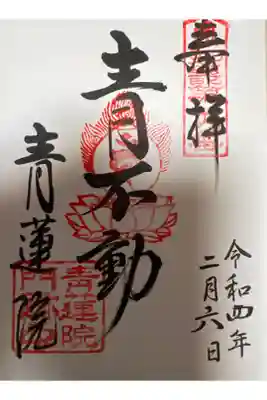 奉拝
令和四年
二月六日
青不動
青蓮院
青蓮院